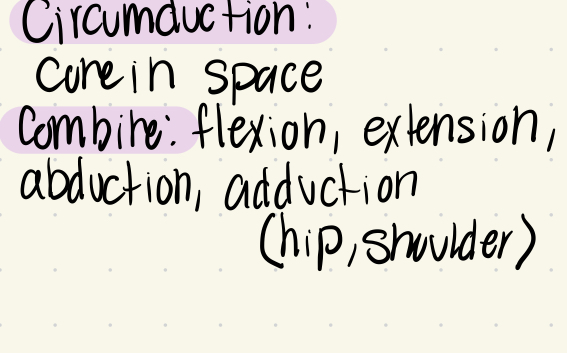 Circumduction:
cone in space
Combine: flexion, extension,
abduction, adduction
(hip, shoulder)